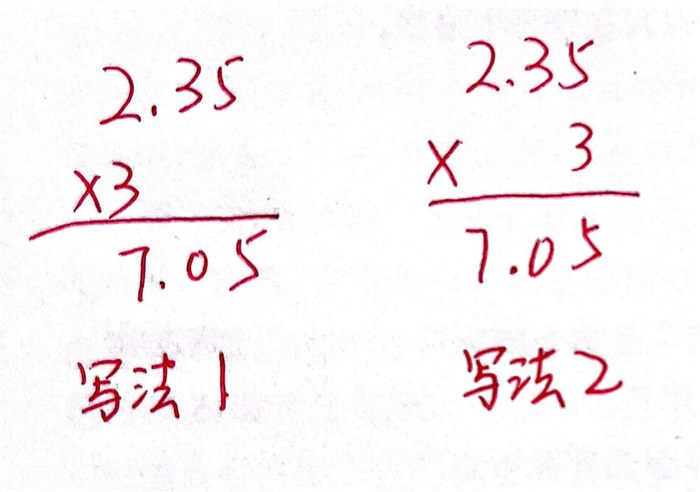 2.35
×3
7.05
写法1
2.35
× 3
7.05
写法2